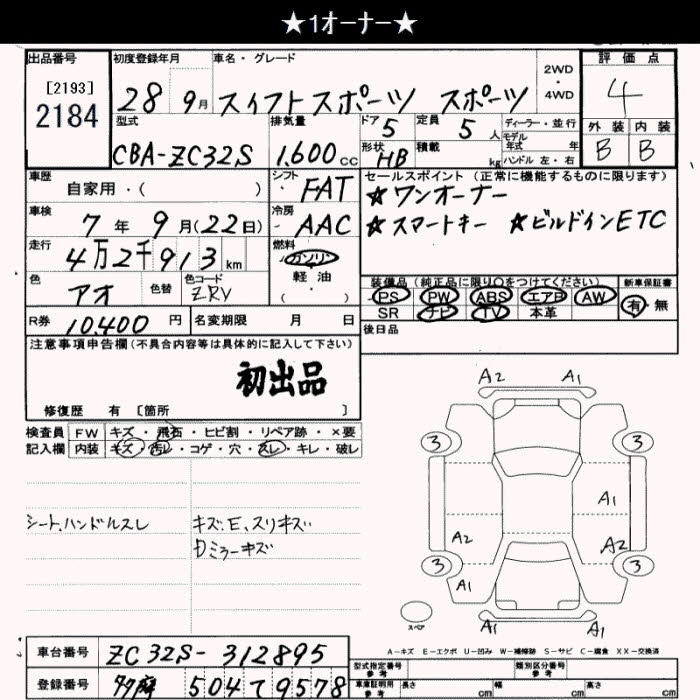 ★1オーナー★
出品番号 初度登録年月 車名・グレード 2WD・4WD 評価点
[2193]
2184
28 9月 スイフトスポーツ スポーツ 4
型式 排気量 ドア 5 定員 5人 ディーラー・並行 外装 内装
モデル年式 年
CBA-ZC32S 1.600cc 形状 HB 積載 kg ハンドル 左・右 B B
車歴 シフト セールスポイント(正常に機能するものに限ります)
自家用・( ) FAT ☆ワンオーナー
車検 冷房
7年 9月(22日) AAC ☆スマートキー ☆ビルドインETC
走行 燃料
4万2千913km ガソリン
色 色替 色コード 軽油 装備品(純正品に限り○をつけてください) 新車保証書
アオ ZRV ( ) PS PW ABS エアB AW 有・無
SR ナビ TV 本革
R券 10.400円 名変期限 月 日 後日品
注意事項申告欄(不具合内容等は具体的に記入して下さい)
初出品
修復歴 有 [箇所 ]
検査員 FW キズ・飛石・ヒビ割・リペア跡・×要
記入欄 内装 キズ・汚レ・コゲ・穴・スレ・キレ・破レ
シート、ハンドルスレ キズ、E、スリキズ
ミラーキズ
A2 A1
3 3
A1
A2 A2
3 3
A1
スペア
A-キズ E-エクボ U-凹み W-補修跡 S-サビ C-腐食 XX-交換済
車台番号 ZC32S-312895 型式指定番号 参考 類別区分番号 参考
登録番号 504 9578 車庫証明用 参考 長さ cm 幅 cm 高さ cm